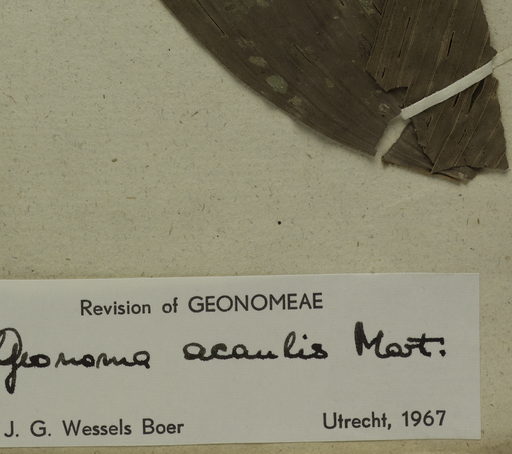 Revision of GEONOMEAE
Geonoma acaulis Mart.
J. G. Wessels Boer Utrecht, 1967